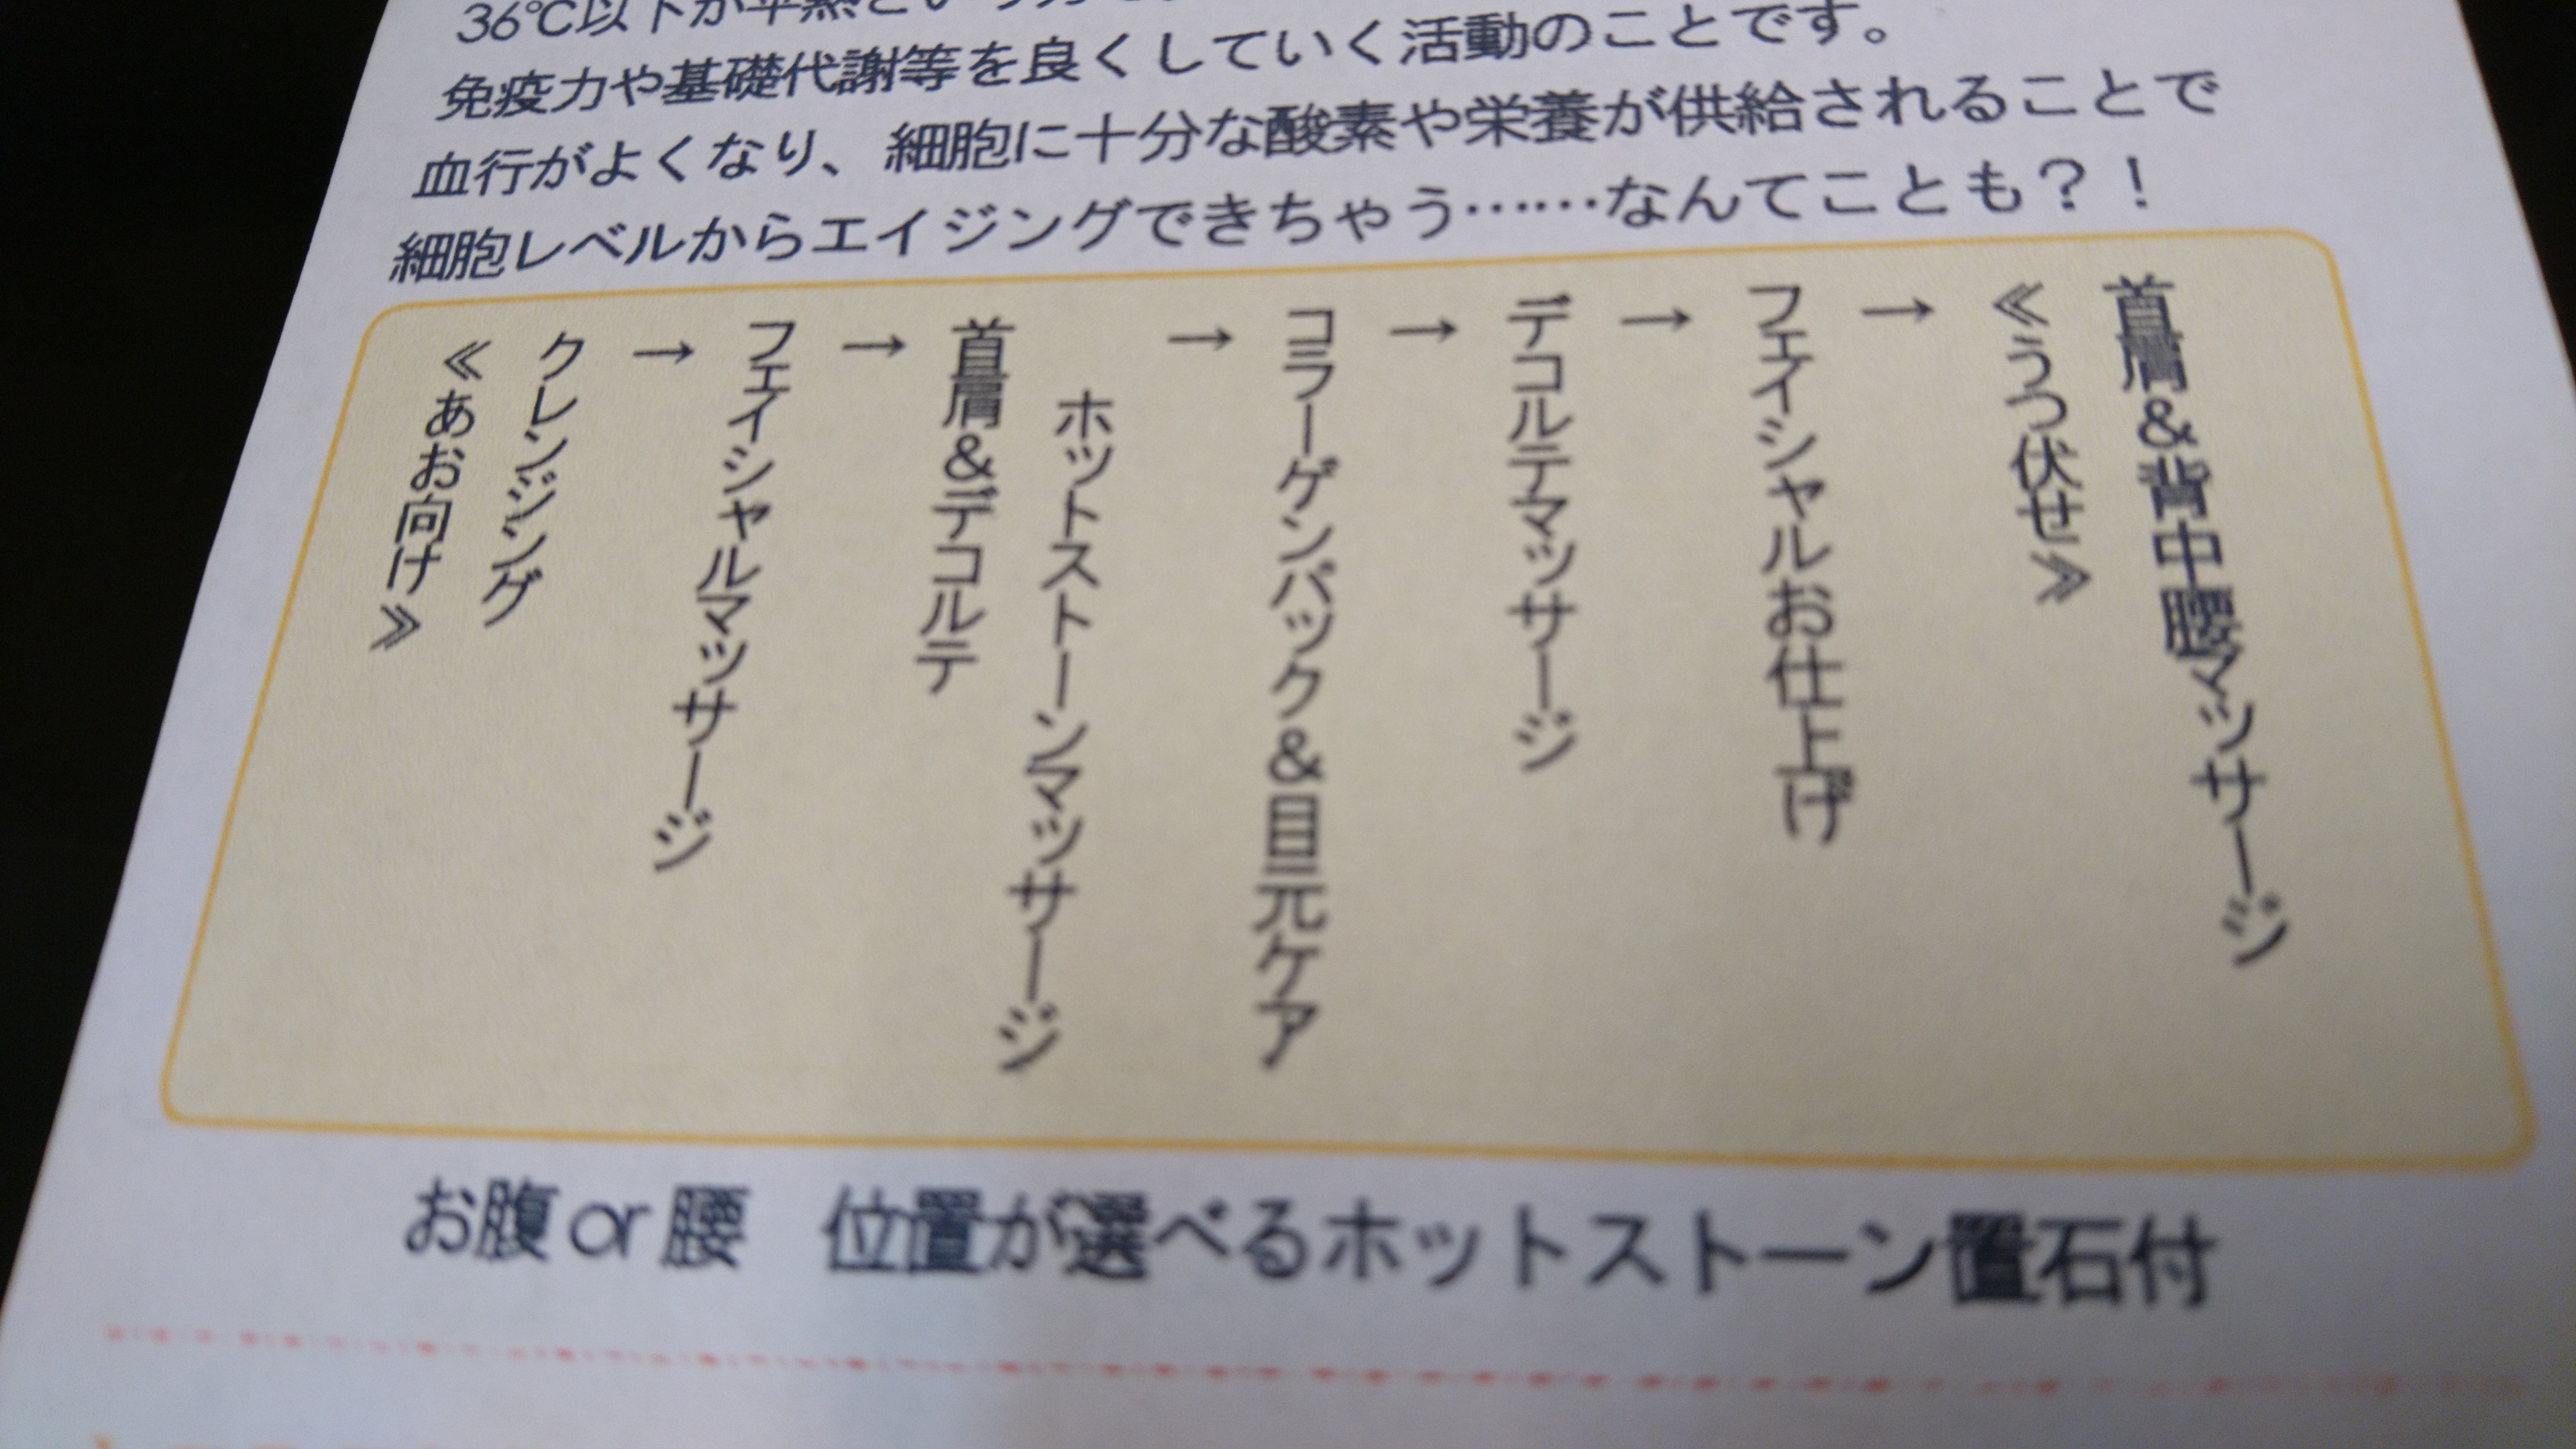 36℃以下が平熱という方
免疫力や基礎代謝等を良くしていく活動のことです。
血行がよくなり、細胞に十分な酸素や栄養が供給されることで
細胞レベルからエイジングできちゃう……なんてことも？！
≪あお向け≫
クレンジング
→
フェイシャルマッサージ
→
首肩&デコルテ
ホットストーンマッサージ
→
コラーゲンパック&目元ケア
→
デコルテマッサージ
→
フェイシャルお仕上げ
→
≪うつ伏せ≫
首肩&背中腰マッサージ
お腹or腰　位置が選べるホットストーン置石付